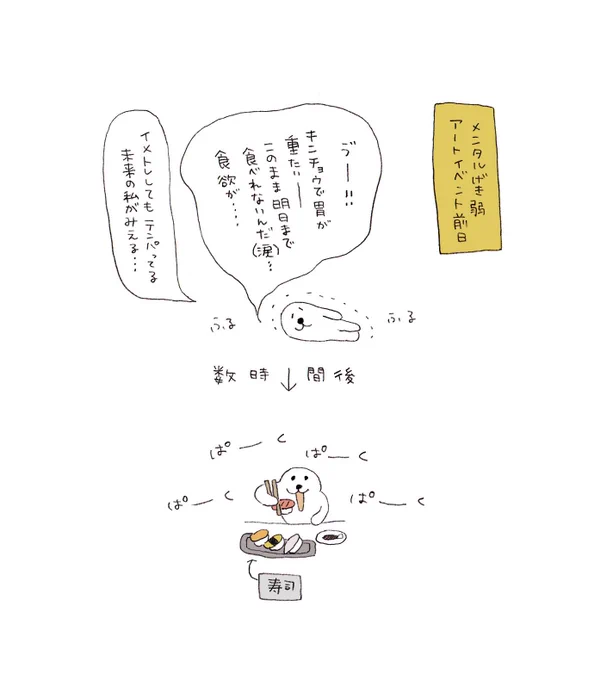 メンタルげき弱
アートイベント前日
ゔーー!!
キンチョウで胃が
重たいーー
このまま明日まで
食べれないんだ(涙)…
食欲が・・・・
イメトレしてもテンパってる
未来の私がみえる・・・
ふる
ふる
数時↓間後
ぱーく
ぱーく
ぱーく
ぱーく
寿司